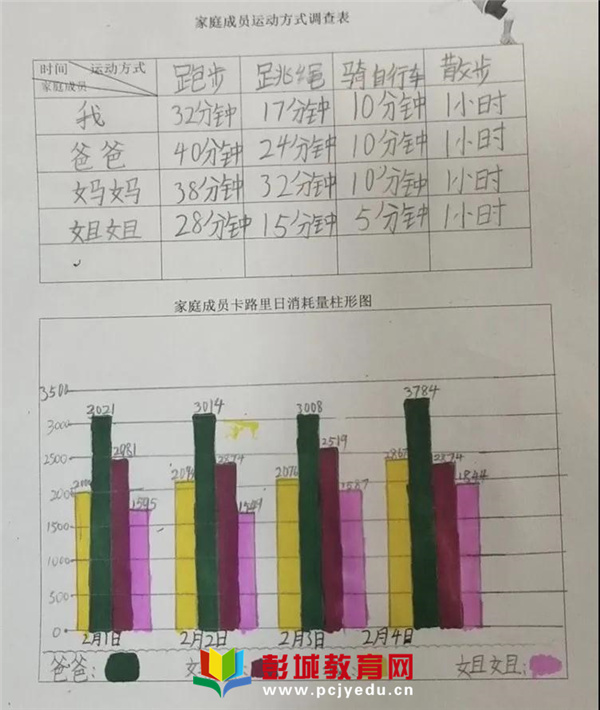 家庭成员运动方式调查表
时间 运动方式 家庭成员 跑步 跳绳 骑自行车 散步
我 32分钟 17分钟 10分钟 1小时
爸爸 40分钟 24分钟 10分钟 1小时
妈妈 38分钟 32分钟 10分钟 1小时
姐姐 28分钟 15分钟 5分钟 1小时
家庭成员卡路里日消耗量柱形图
3500
3000
2500
2000
1500
1000
500
0
3021 3014 3008 3784
2981 2874 2519 2874
1595 1587 1844
2月1日 2月2日 2月3日 2月4日
爸爸: 姐姐:
彭城教育网
www.pcjyedu.cn